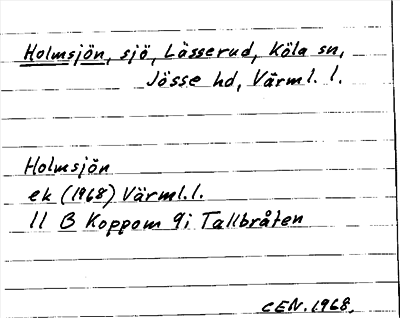 Holmsjön, sjö, Lässerud, Köla sn,
Jösse hd, Värml. l.
Holmsjön
ek (1968) Värml.l.
11 B Koppom 9i Tallbråten
CEN. 1968.